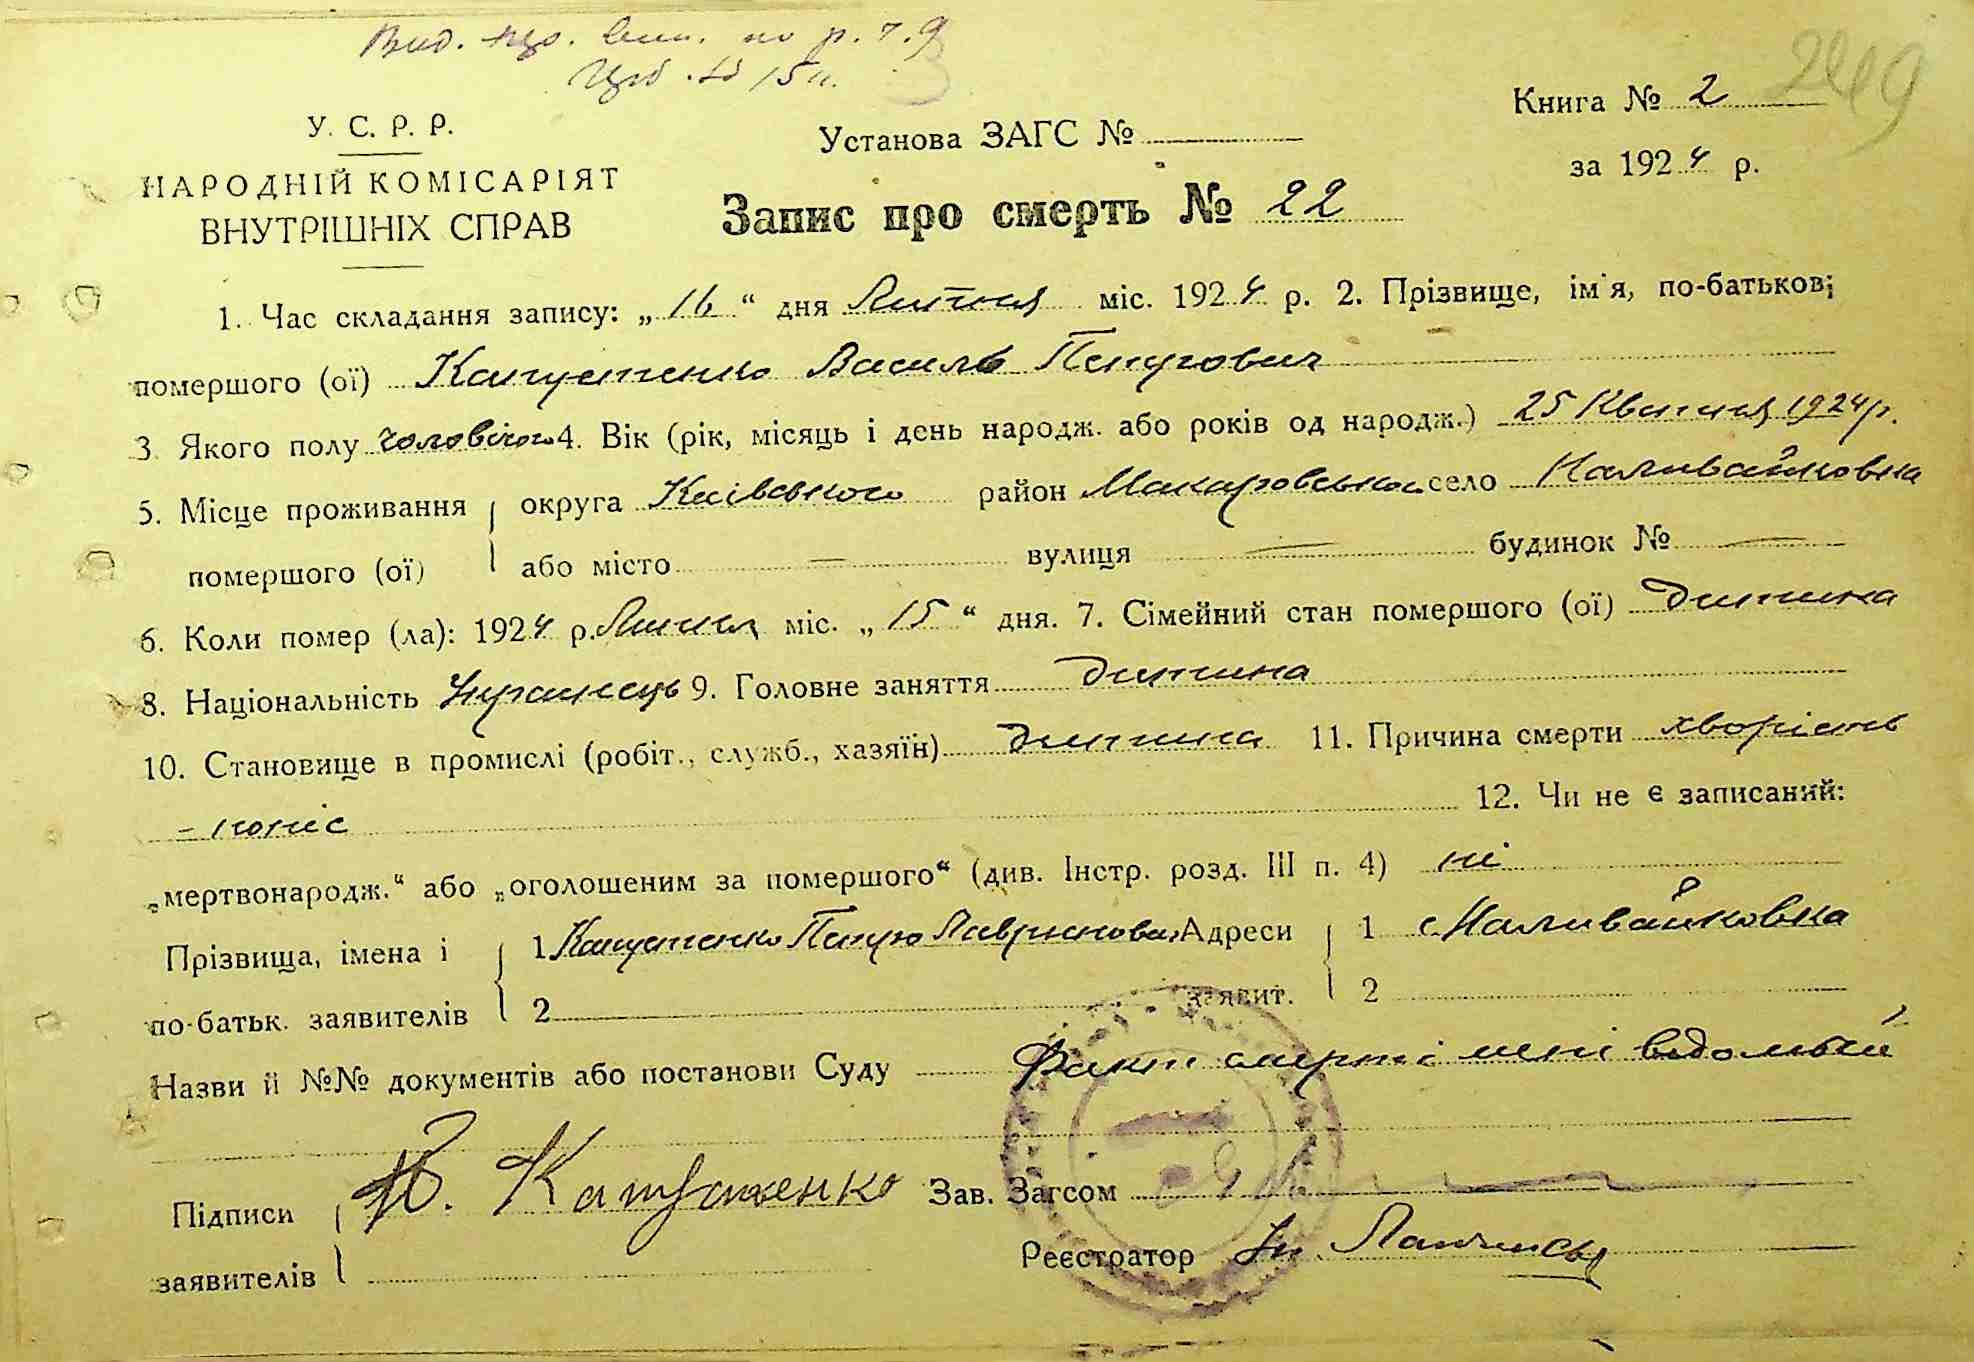 Вид. по р. 7.9
У. С. Р. Р.
НАРОДНІЙ КОМІСАРІЯТ
ВНУТРІШНІХ СПРАВ
Установа ЗАГС №
Книга № 2
249
за 1924 р.
Запис про смерть № 22
1. Час складання запису: „16“ дня Липня міс. 1924 р. 2. Прізвище, ім'я, по-батькові
помершого (ої) Капустенко Василь Петрович
3. Якого полу чоловічого 4. Вік (рік, місяць і день народж. або років од народж.) 25 Квітня 1924 р.
5. Місце проживання округа Київського район Макаровського село Наливайковка
помершого (ої) або місто — вулиця — будинок № —
6. Коли помер (ла): 1924 р. Липня міс. „15“ дня. 7. Сімейний стан помершого (ої) дитина
8. Національність Украинець 9. Головне заняття дитина
10. Становище в промислі (робіт., служб., хазяїн) дитина 11. Причина смерти хворість
- понис 12. Чи не є записаний:
„мертвонародж.“ або „оголошеним за помершого“ (див. Інстр. розд. III п. 4) ні
Прізвища, імена і 1 Капустенко Петро Адреси 1 с Наливайковка
по-батьк. заявителів 2 заявит. 2
Назви й №№ документів або постанови Суду Факт смерті мені ведомый
Підписи П. Капустенко Зав. Загсом
заявителів Реєстратор